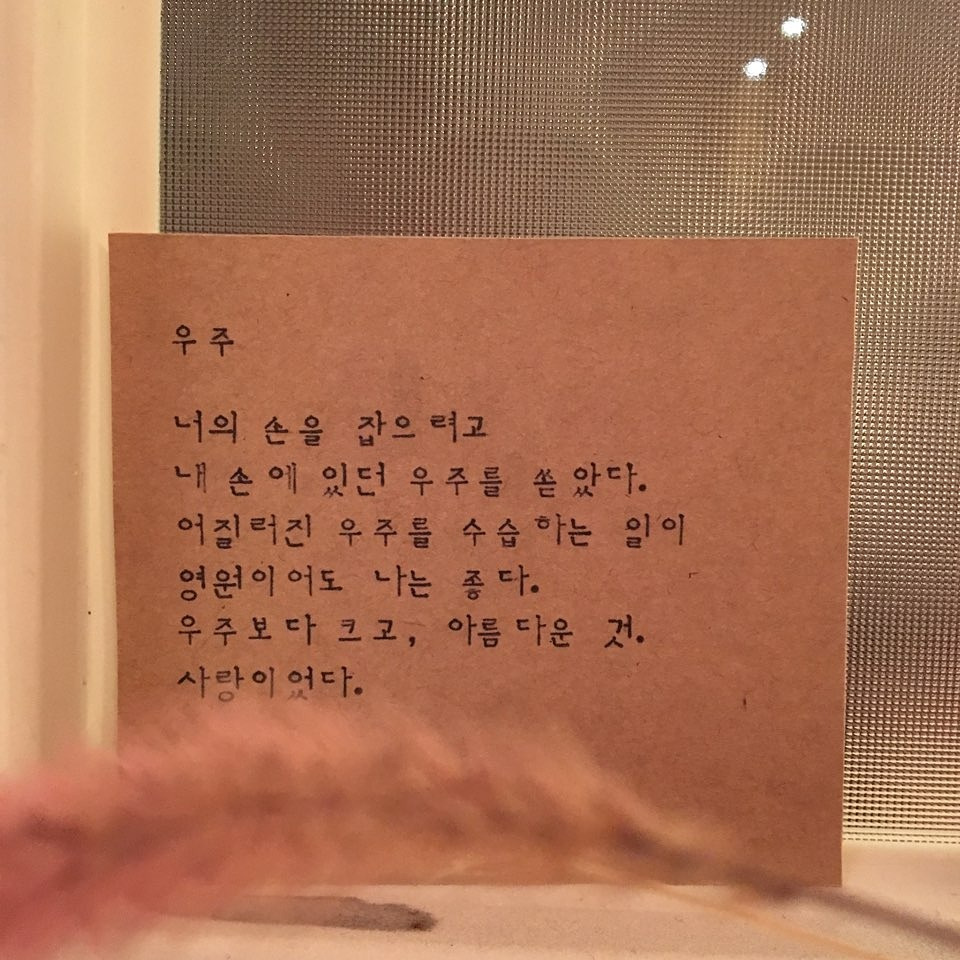 우주
너의 손을 잡으려고
내 손에 있던 우주를 쏟았다.
어질러진 우주를 수습하는 일이
영원이어도 나는 좋다.
우주보다 크고, 아름다운 것.
사랑이었다.